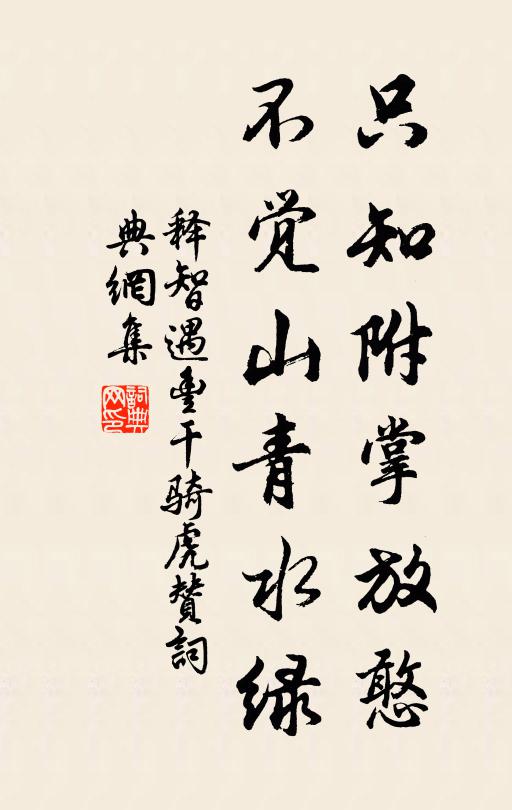 只知附掌放憨
不觉山青水绿
释智遇豊干骑虎赞詞
典網集
詞典
网印